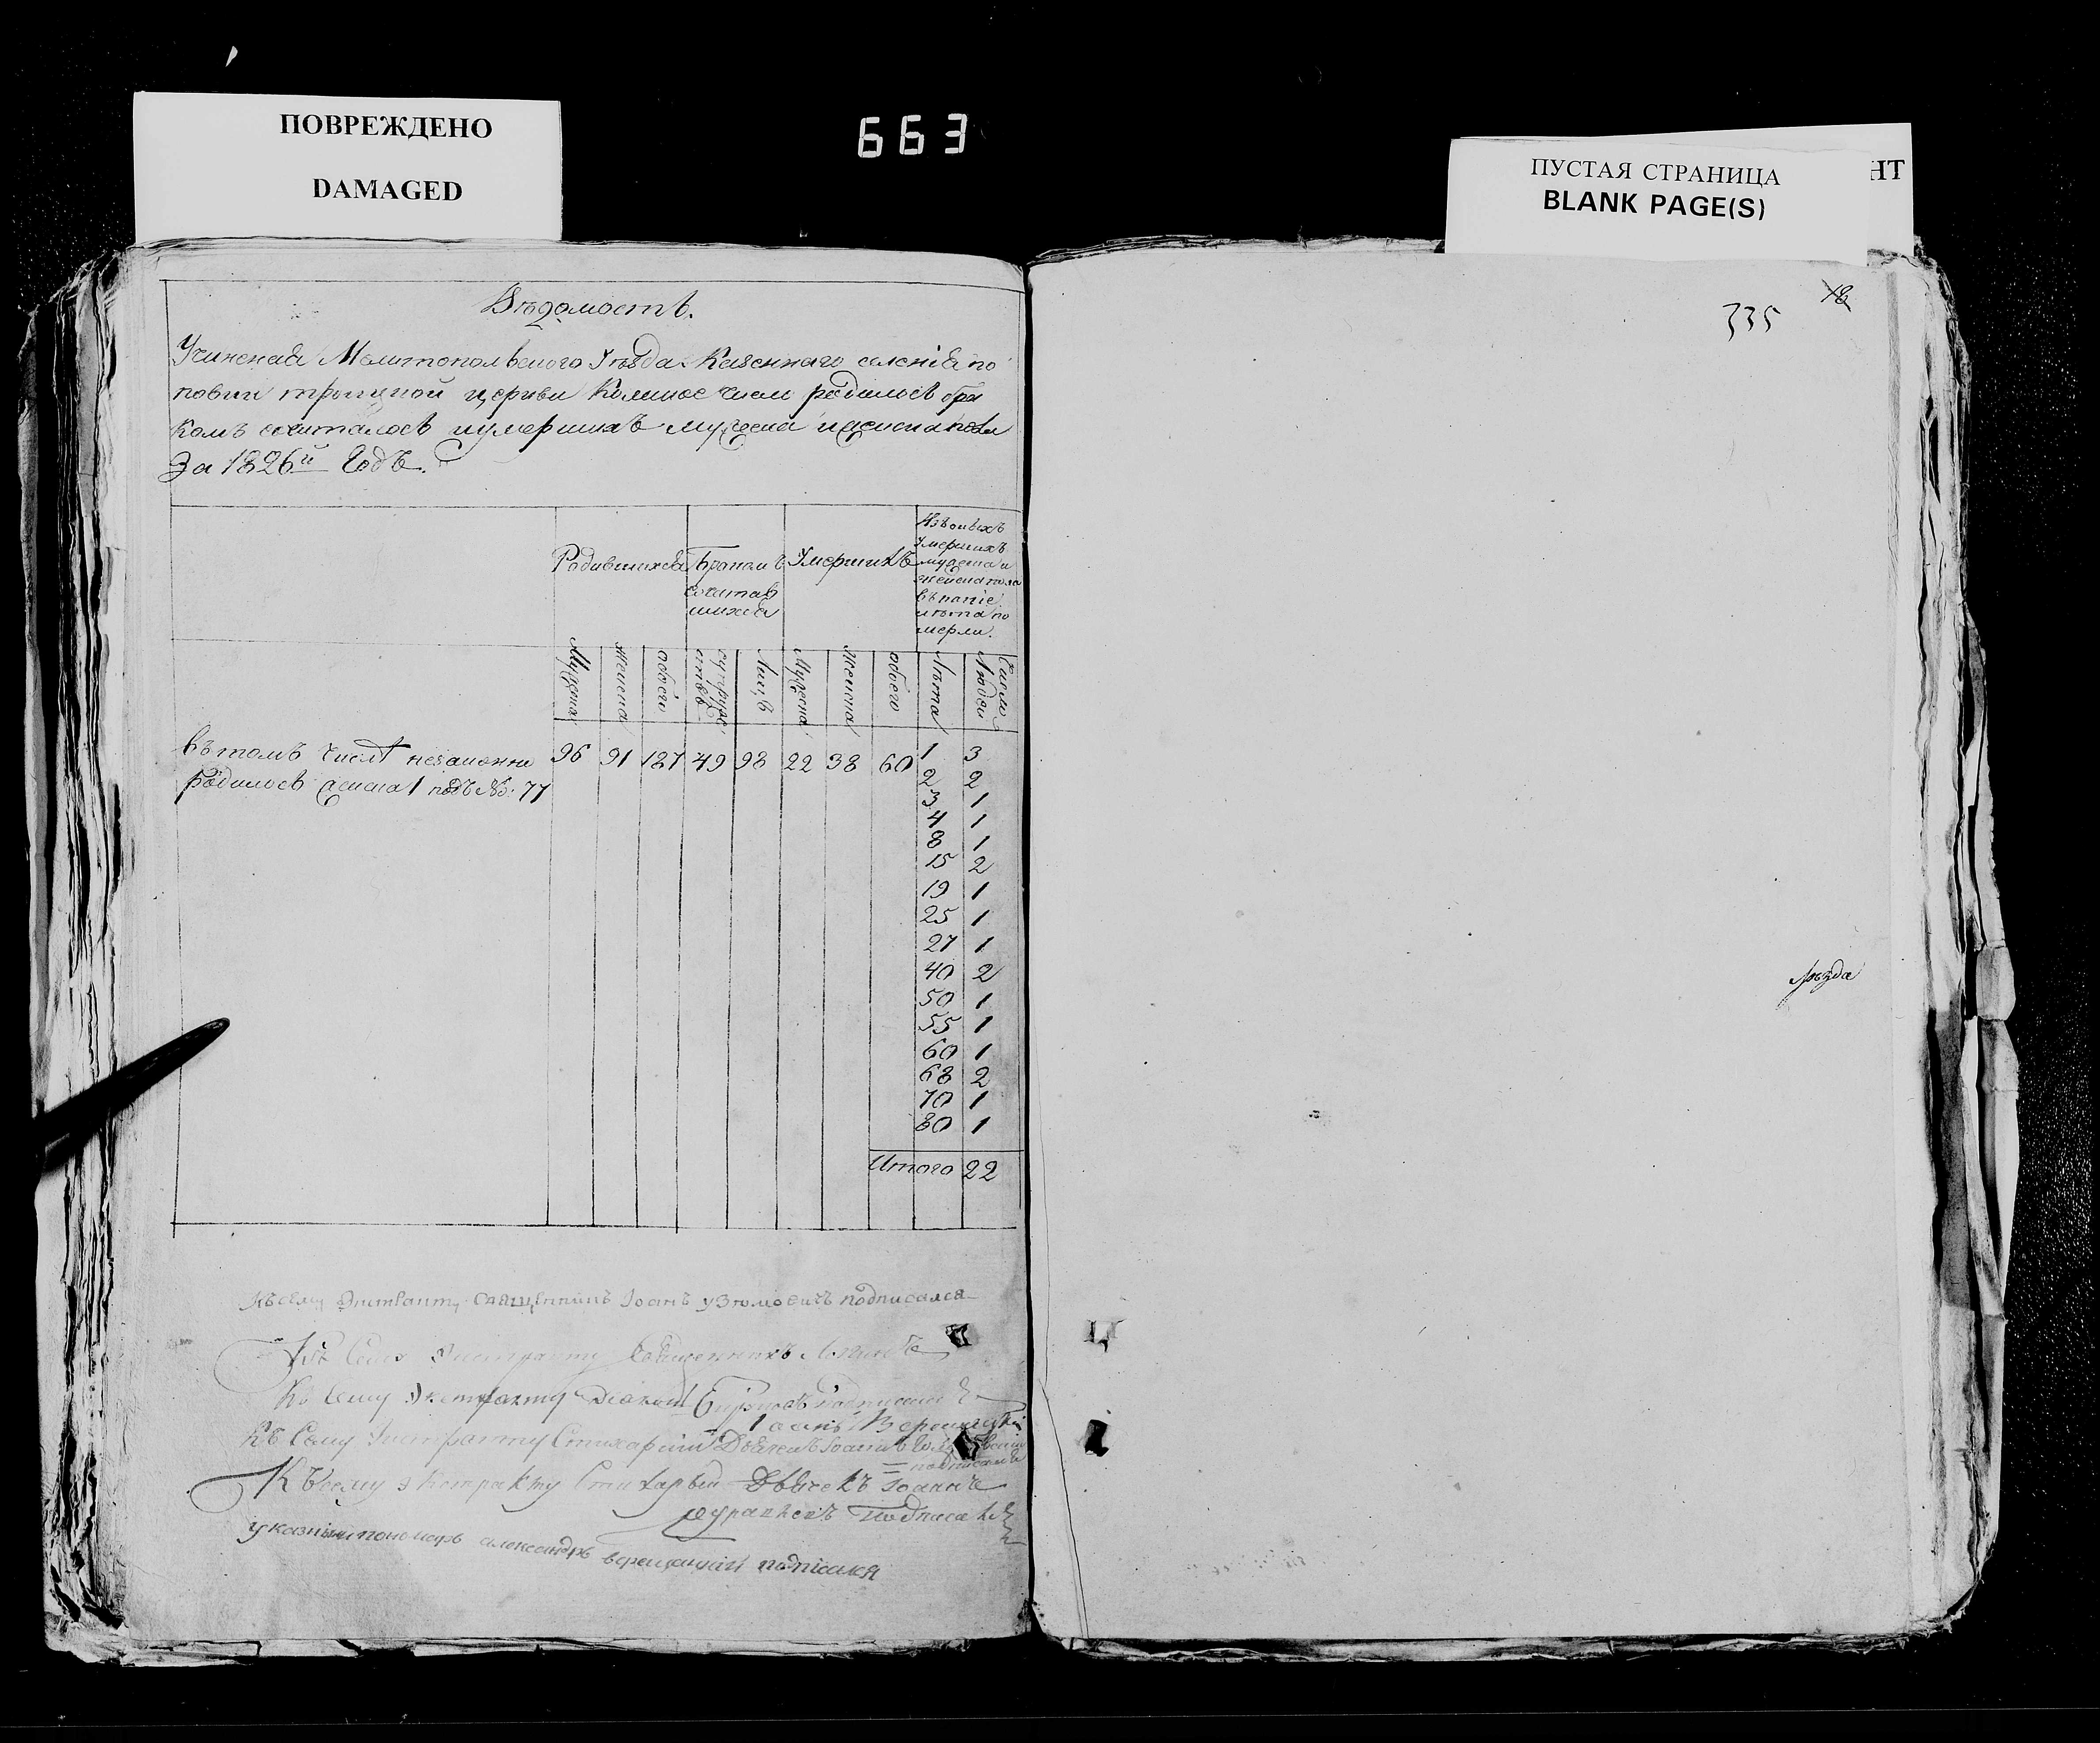 ПОВРЕЖДЕНО
DAMAGED
663
ПУСТАЯ СТРАНИЦА
BLANK PAGE(S)
НТ
Вѣдомость.
Учиненая Мелитопольского Уезда Казенного селенія по
повки троицкой церкви Коликое число родилось бра
комъ сочиталось иумершихъ мужеска иженска пола
За 1826й Годъ.
Родившихся
Бракомъ сочетав шихся
Умершихъ
Изъоныхъ Умершихъ мужеска и женска пола въ какіе лѣта по мерли.
Мужеска
женска
обоего
супружествъ
Лицъ
Мужеска
Женска
обоего
Лѣта
Число Людей
въ томъ числѣ незаконно
родилось женска 1 подъ №. 77
96 91 187 49 98 22 38 60 1 3
2 2
3 1
4 1
8 1
15 2
19 1
25 1
27 1
40 2
50 1
55 1
60 1
68 2
70 1
80 1
Итого 22
Къ сему Экстракту священникъ Іоанъ подписался
Къ Сему Экстракту Священникъ
Ко Сему Экстракту Діаконъ подписался
Іоанъ Верещацкій
Къ Сему Экстракту Стихарный Дьячекъ Іоаннъ
подписался
Къ сему экстракту Стихарный Дьячекъ Іоаннъ
Журавлевъ Подписался
указный пономарь александръ верещацкій подписался
335
18
Уѣзда